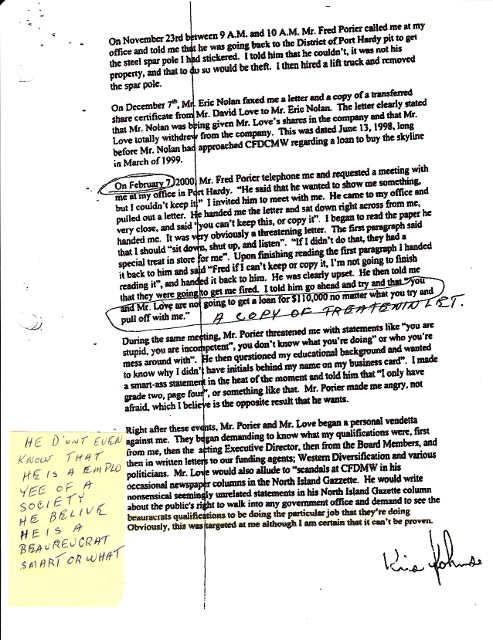 On November 23rd between 9 A.M. and 10 A.M. Mr. Fred Porier called me at my
office and told me that he was going back to the District of Port Hardy pit to get
the steel spar pole I had stickered. I told him that he couldn't, it was not his
property, and that to do so would be theft. I then hired a lift truck and removed
the spar pole.
On December 7th, Mr. Eric Nolan faxed me a letter and a copy of a transferred
share certificate from Mr. David Love to Mr. Eric Nolan. The letter clearly stated
that Mr. Nolan was being given Mr. Love's shares in the company and that Mr.
Love totally withdrew from the company. This was dated June 13, 1998, long
before Mr. Nolan had approached CFDCMW regarding a loan to buy the skyline
in March of 1999.
On February 7, 2000, Mr. Fred Porier telephone me and requested a meeting with
me at my office in Port Hardy. "He said that he wanted to show me something,
but I couldn't keep it." I invited him to meet with me. He came to my office and
pulled out a letter. He handed me the letter and sat down right across from me,
very close, and said "you can't keep this, or copy it". I began to read the paper he
handed me. It was very obviously a threatening letter. The first paragraph said
that I should "sit down, shut up, and listen". "If I didn't do that, they had a
special treat in store for me". Upon finishing reading the first paragraph I handed
it back to him and said "Fred if I can't keep or copy it, I'm not going to finish
reading it", and handed it back to him. He was clearly upset. He then told me
that they were going to get me fired. I told him go ahead and try and that "you
and Mr. Love are not going to get a loan for $110,000 no matter what you try and
pull off with me."
A COPY OF TREATENIN LET.
During the same meeting, Mr. Porier threatened me with statements like "you are
stupid, you are incompetent", you don't know what you're doing" or who you're
mess around with". He then questioned my educational background and wanted
to know why I didn't have initials behind my name on my business card". I made
a smart-ass statement in the heat of the moment and told him that "I only have
grade two, page four", or something like that. Mr. Porier made me angry, not
afraid, which I believe is the opposite result that he wants.
Right after these events, Mr. Porier and Mr. Love began a personal vendetta
against me. They began demanding to know what my qualifications were, first
from me, then the acting Executive Director, then from the Board Members, and
then in written letters to our funding agents; Western Diversification and various
politicians. Mr. Love would also allude to "scandals at CFDMW in his
occasional newspaper columns in the North Island Gazzette. He would write
nonsensical seemingly unrelated statements in his North Island Gazzette column
about the public's right to walk into any government office and demand to see the
beauracrats qualifications to be doing the particular job that they're doing
Obviously, this was targeted at me although I am certain that it can't be proven.
HE D'ONT EVEN
KNOW THAT
HE IS A EMPLO
YEE OF A
SOCIETY
HE BELIVE
HE IS A
BEAUREUCRAT
SMART OR WHAT